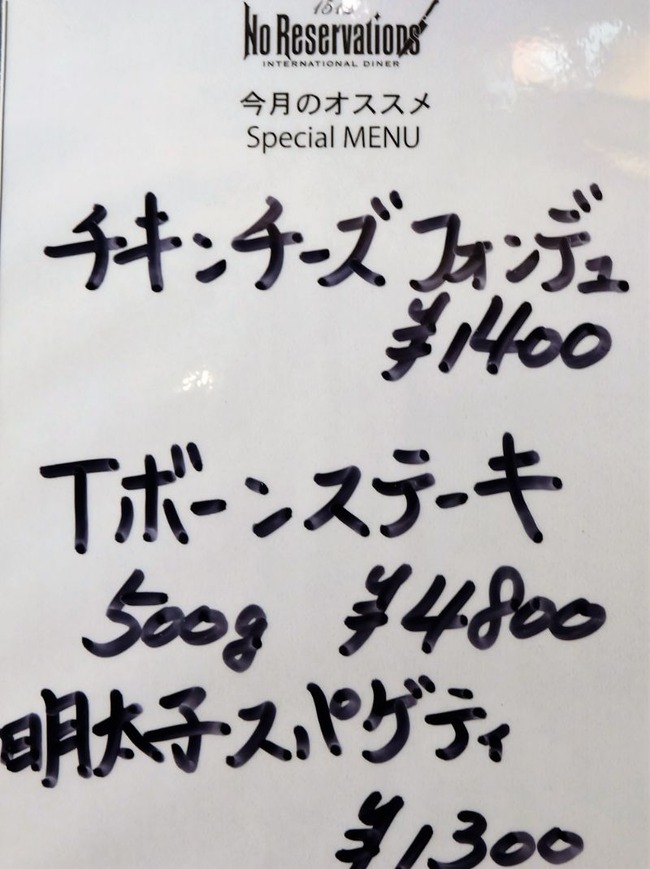 No Reservations
INTERNATIONAL DINER
今月のオススメ
Special MENU
チキンチーズフォンデュ
¥1400
Tボーンステーキ
500g ¥4800
明太子スパゲティ
¥1300